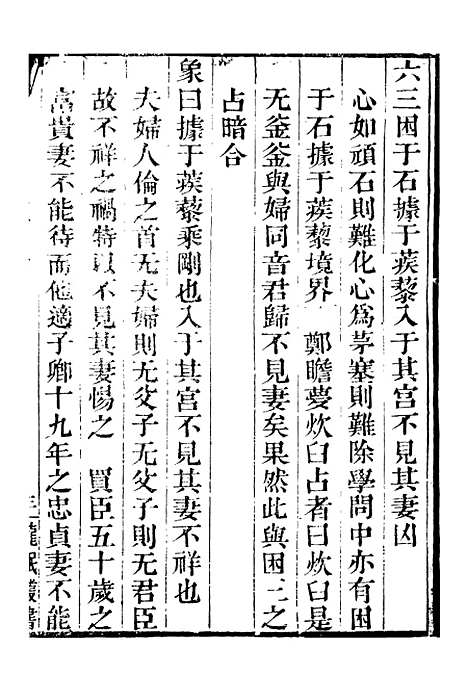 六三困于石據于蒺藜入于其宮不見其妻凶
心如頑石則難化心為茅塞則難除學問中亦有困
于石據于蒺藜境界 鄭瞻夢炊臼占者曰炊臼是
无釜釜與婦同音君歸不見妻矣果然此與困三之
占暗合
象曰據于蒺藜乘剛也入于其宮不見其妻不祥也
夫婦人倫之首无夫婦則无父子无父子則无君臣
故不祥之禍特以不見其妻惕之 買臣五十歲之
富貴妻不能待而他適子卿十九年之忠貞妻不能
三 龍眠叢書